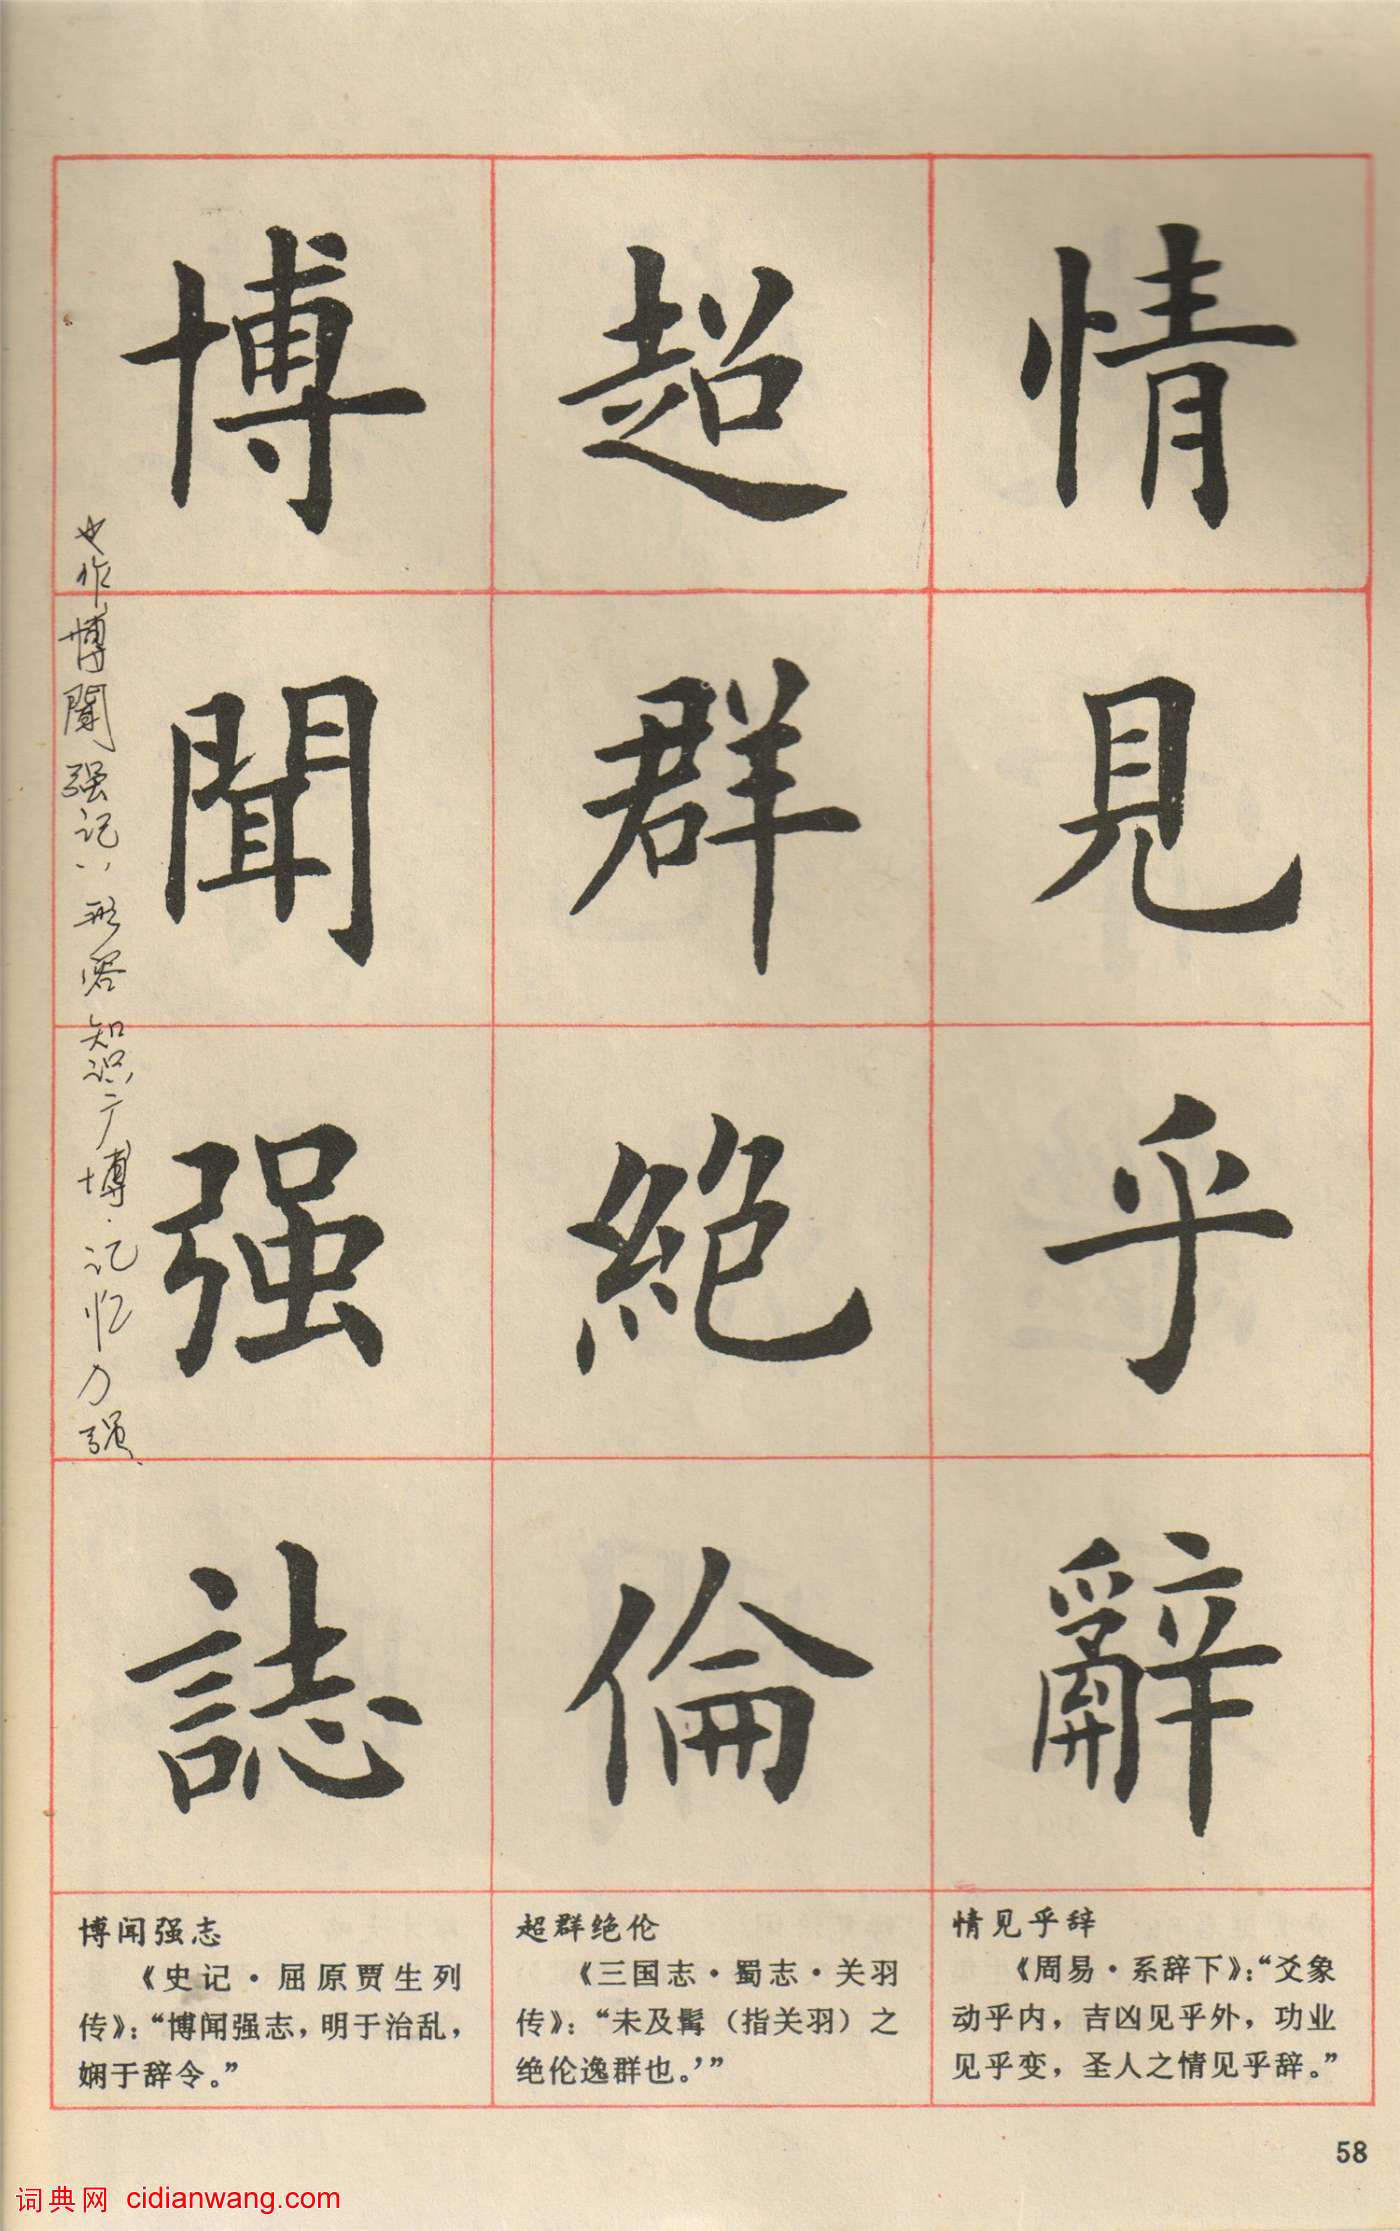 情見乎辭
超群絶倫
博聞强誌
也作博聞强记、形容知识广博.记忆力强
情见乎辞
《周易·系辞下》：“爻象
动乎内，吉凶见乎外，功业
见乎变，圣人之情见乎辞。”
超群绝伦
《三国志·蜀志·关羽
传》：“未及髯（指关羽）之
绝伦逸群也。’”
博闻强志
《史记·屈原贾生列
传》：“博闻强志，明于治乱，
娴于辞令。”
58
词典网 cidianwang.com